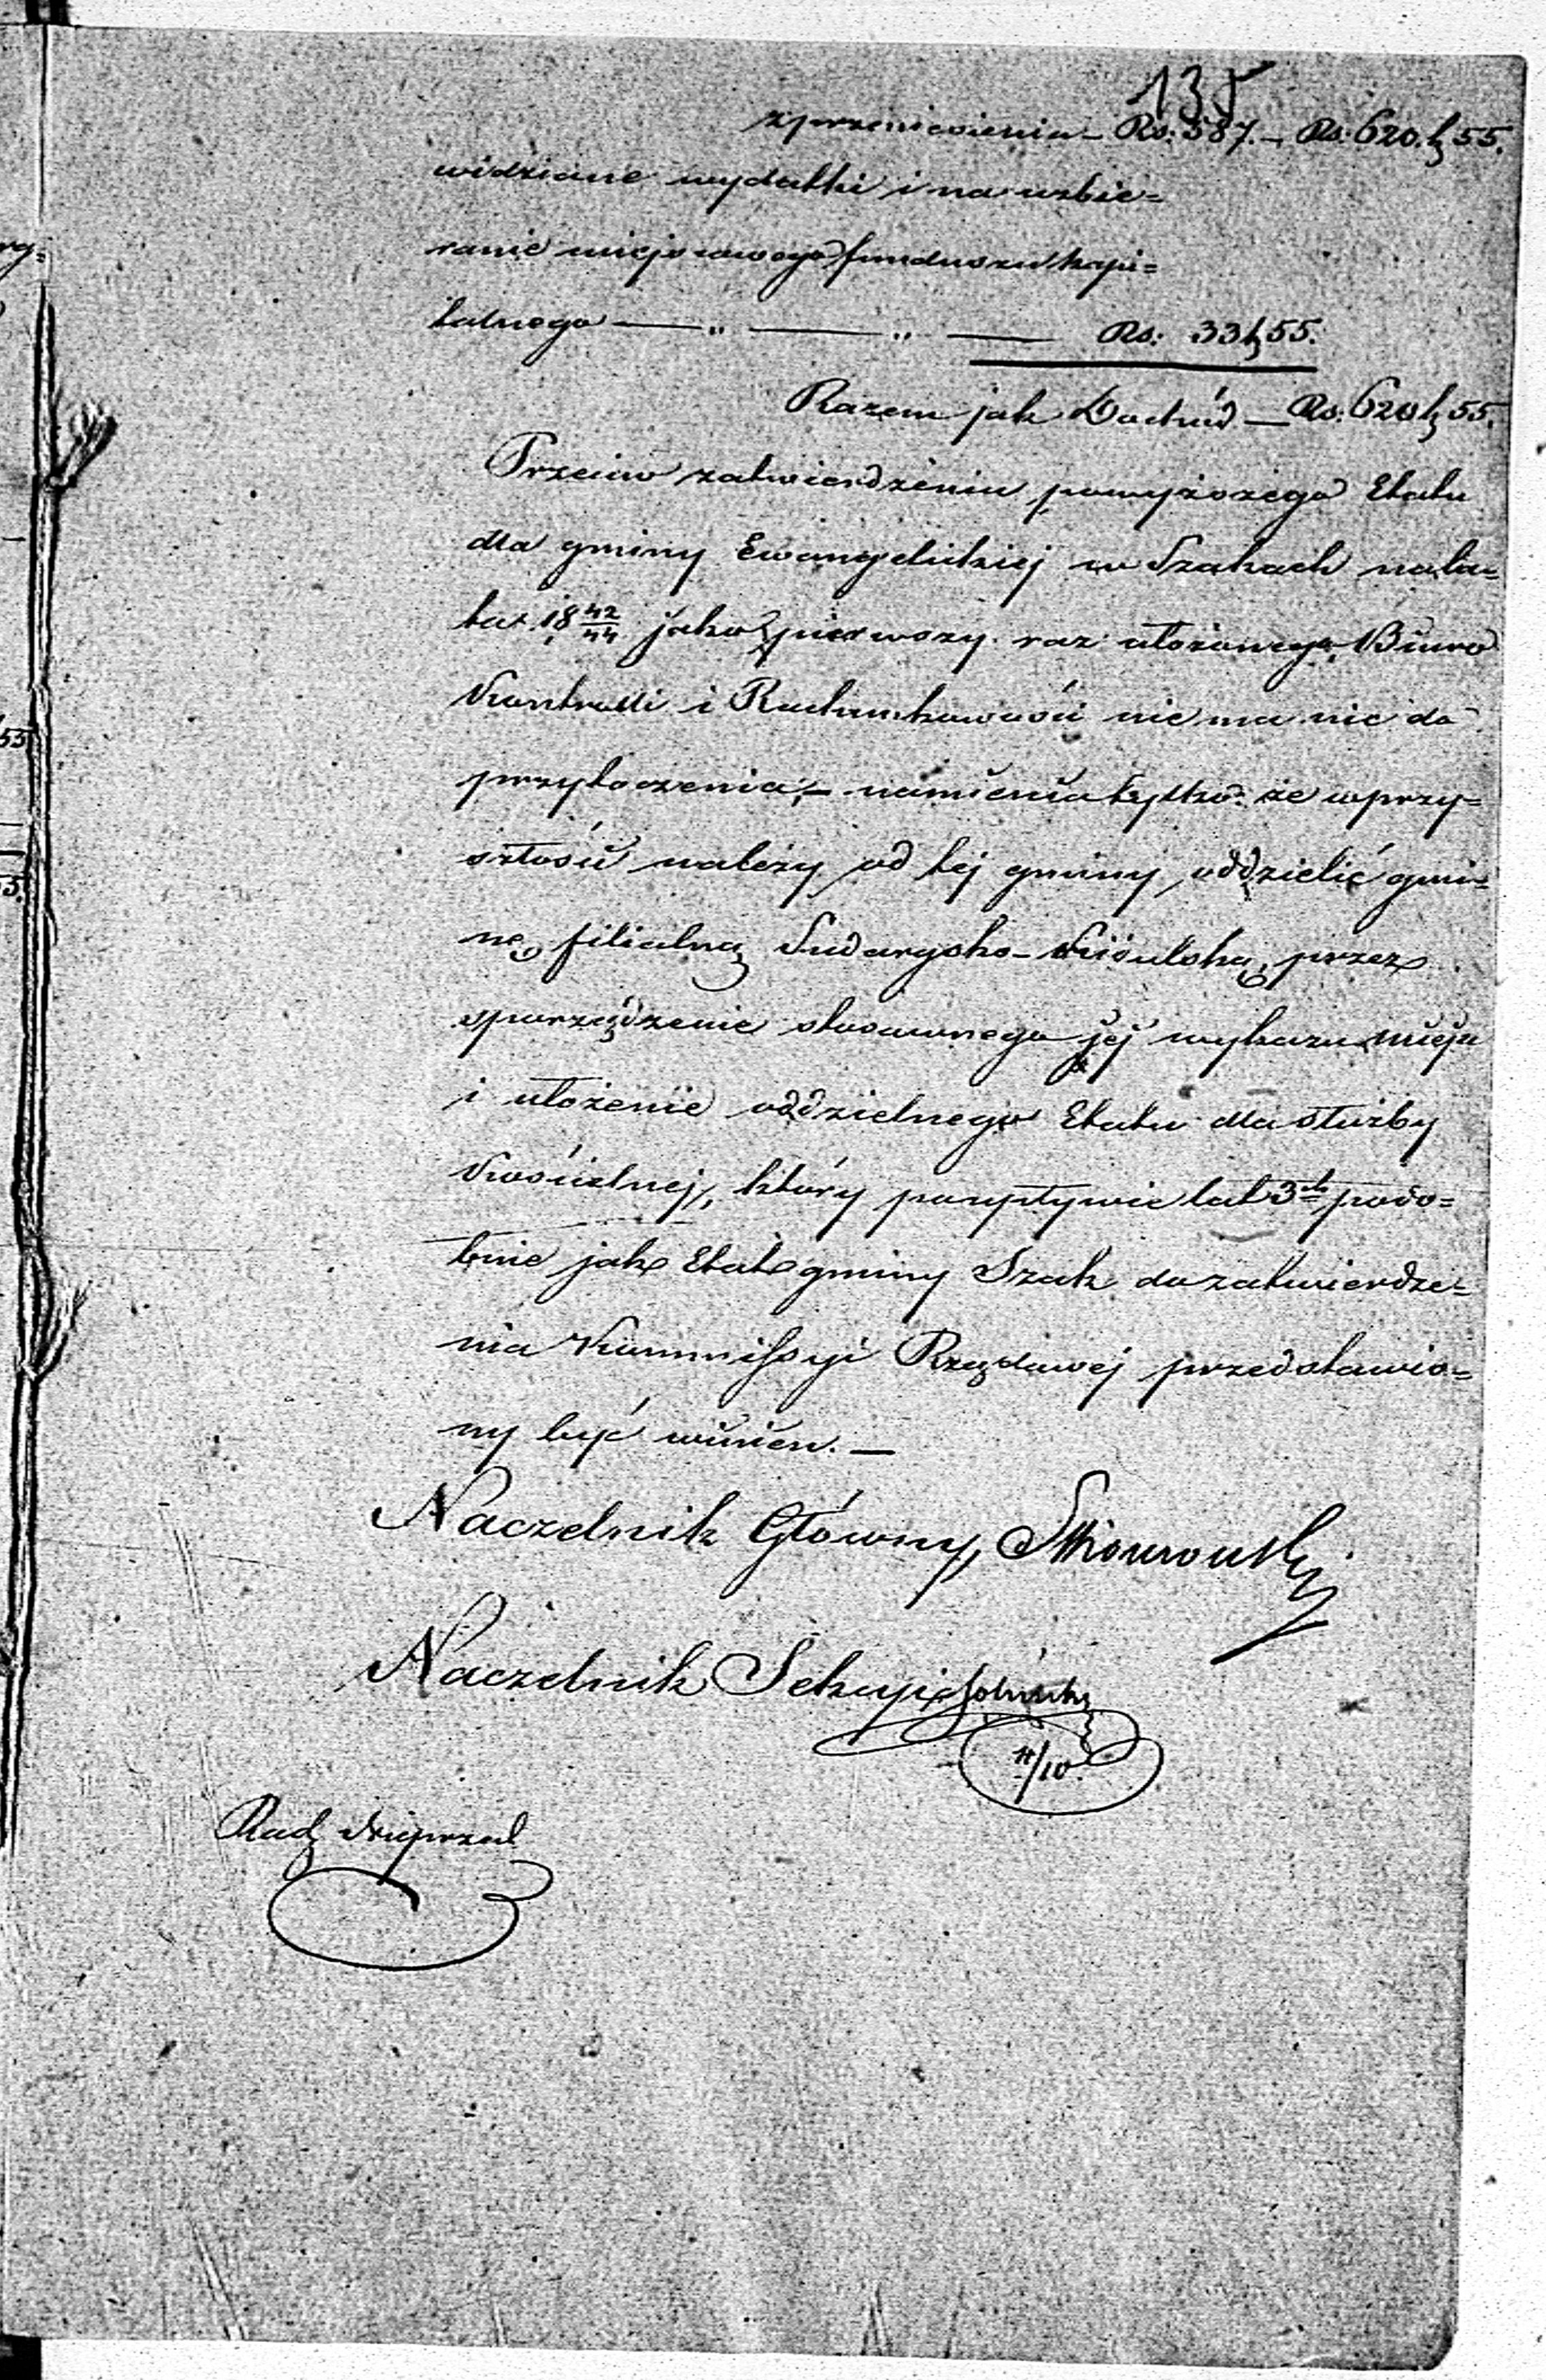 135
z przeniesienia — Rs: 587. — Rs: 620. k 55.
widziane wydatki i na uzbie=
ranie miejscowego funduszu kapi=
talnego — „ — „ — Rs: 33 k 55.
Razem jak Dochód — Rs: 620 k 55.
Przeciw zatwierdzeniu powyższego Etatu
dla gminy Ewangelickiej w Szakach na la=
ta 18 42/44 jako pierwszy raz ułożonego, Biuro
Kontrolli i Rachunkowości nie ma nic do
przytoczenia, — namienia tylko: że w przy=
szłości należy od tej gminy oddzielić gmi=
nę filialną Sudargsko- przez
sporządzenie stosownego jej wykazu
i ułożenie oddzielnego Etatu dla służby
Kościelnej, który po upływie lat 3ch podo=
bnie jak Etat gminy Szak do zatwierdze=
nia Kommissyi Rządowej przedstawio=
ny być winien. —
Naczelnik Główny,
Naczelnik Sekcyi
11/10
Radz